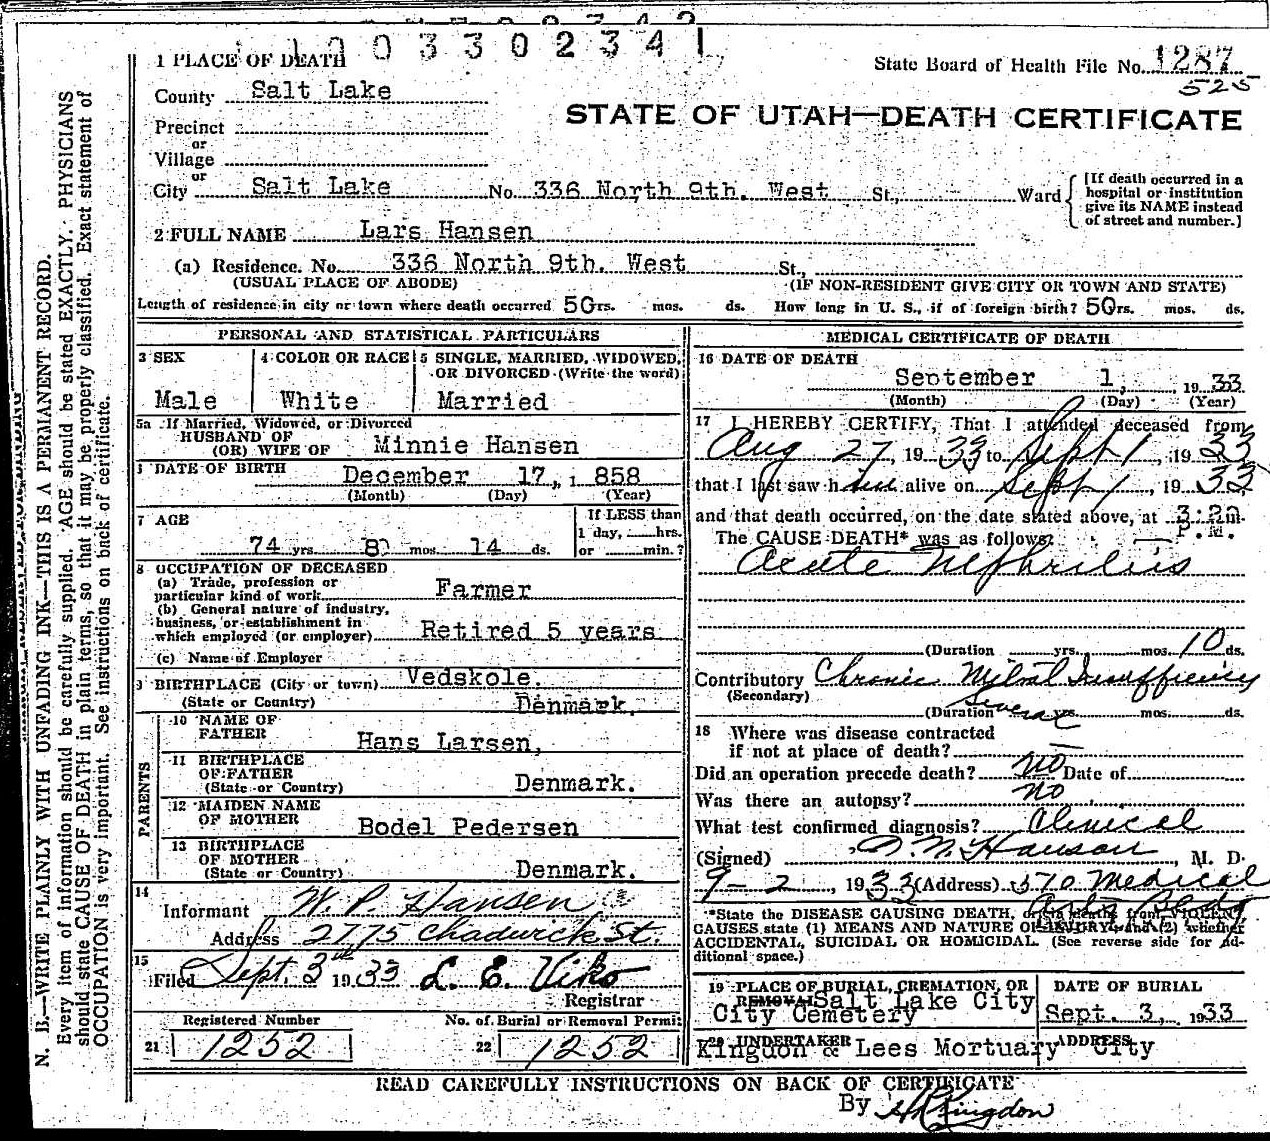 1003302341
1 PLACE OF DEATH
State Board of Health File No. 1287
525
County Salt Lake
STATE OF UTAH—DEATH CERTIFICATE
Precinct
or
Village
or
City Salt Lake No. 336 North 9th. West St., Ward
[If death occurred in a
hospital or institution
give its NAME instead
of street and number.]
2 FULL NAME Lars Hansen
(a) Residence. No. 336 North 9th. West St.,
(USUAL PLACE OF ABODE) (IF NON-RESIDENT GIVE CITY OR TOWN AND STATE)
Length of residence in city or town where death occurred 50 yrs. mos. ds. How long in U. S., if of foreign birth? 50 yrs. mos. ds.
PERSONAL AND STATISTICAL PARTICULARS
3 SEX
Male
4 COLOR OR RACE
White
5 SINGLE, MARRIED, WIDOWED,
OR DIVORCED (Write the word)
Married
5a If Married, Widowed, or Divorced
HUSBAND OF
(OR) WIFE OF Minnie Hansen
6 DATE OF BIRTH
December 17, 1858
(Month) (Day) (Year)
7 AGE
74 yrs. 8 mos. 14 ds.
If LESS than
1 day, hrs.
or min.?
8 OCCUPATION OF DECEASED
(a) Trade, profession or
particular kind of work Farmer
(b) General nature of industry,
business, or establishment in
which employed (or employer) Retired 5 years
(c) Name of Employer
9 BIRTHPLACE (City or town) Vedskole.
(State or Country) Denmark.
PARENTS
10 NAME OF
FATHER Hans Larsen,
11 BIRTHPLACE
OF FATHER
(State or Country) Denmark.
12 MAIDEN NAME
OF MOTHER Bodel Pedersen
13 BIRTHPLACE
OF MOTHER
(State or Country) Denmark.
14
Informant W. P. Hansen
Address 2775 Chadwick St.
15
Filed Sept. 3rd 1933 L. E. Viko
Registrar
Registered Number
21 1252
No. of Burial or Removal Permit
22 1252
MEDICAL CERTIFICATE OF DEATH
16 DATE OF DEATH
September 1, 1933
(Month) (Day) (Year)
17 I HEREBY CERTIFY, That I attended deceased from
Aug 27, 1933 to Sept 1, 1933
that I last saw him alive on Sept 1, 1933,
and that death occurred, on the date stated above, at 3:20 m.
P.M.
The CAUSE DEATH* was as follows:
Acute Nephritis
(Duration yrs. mos. 10 ds.
Contributory Chronic Mitral Insufficiency
(Secondary)
(Duration several yrs. mos. ds.
18 Where was disease contracted
if not at place of death? —
Did an operation precede death? no Date of
Was there an autopsy? no
What test confirmed diagnosis? Clinical
(Signed) Hanson, M. D.
9-2, 1933 (Address) 570 Medical
Arts Bldg
*State the DISEASE CAUSING DEATH, or in deaths from VIOLENT
CAUSES state (1) MEANS AND NATURE OF INJURY, and (2) whether
ACCIDENTAL, SUICIDAL OR HOMICIDAL. (See reverse side for Ad-
ditional space.)
19 PLACE OF BURIAL, CREMATION, OR
REMOVAL Salt Lake City
City Cemetery
DATE OF BURIAL
Sept. 3, 1933
20 UNDERTAKER ADDRESS
Kingdon & Lees Mortuary City
READ CAREFULLY INSTRUCTIONS ON BACK OF CERTIFICATE
By Kingdon
N. B.—WRITE PLAINLY WITH UNFADING INK—THIS IS A PERMANENT RECORD.
Every item of information should be carefully supplied. AGE should be stated EXACTLY. PHYSICIANS
should state CAUSE OF DEATH in plain terms, so that it may be properly classified. Exact statement of
OCCUPATION is very important. See instructions on back of certificate.